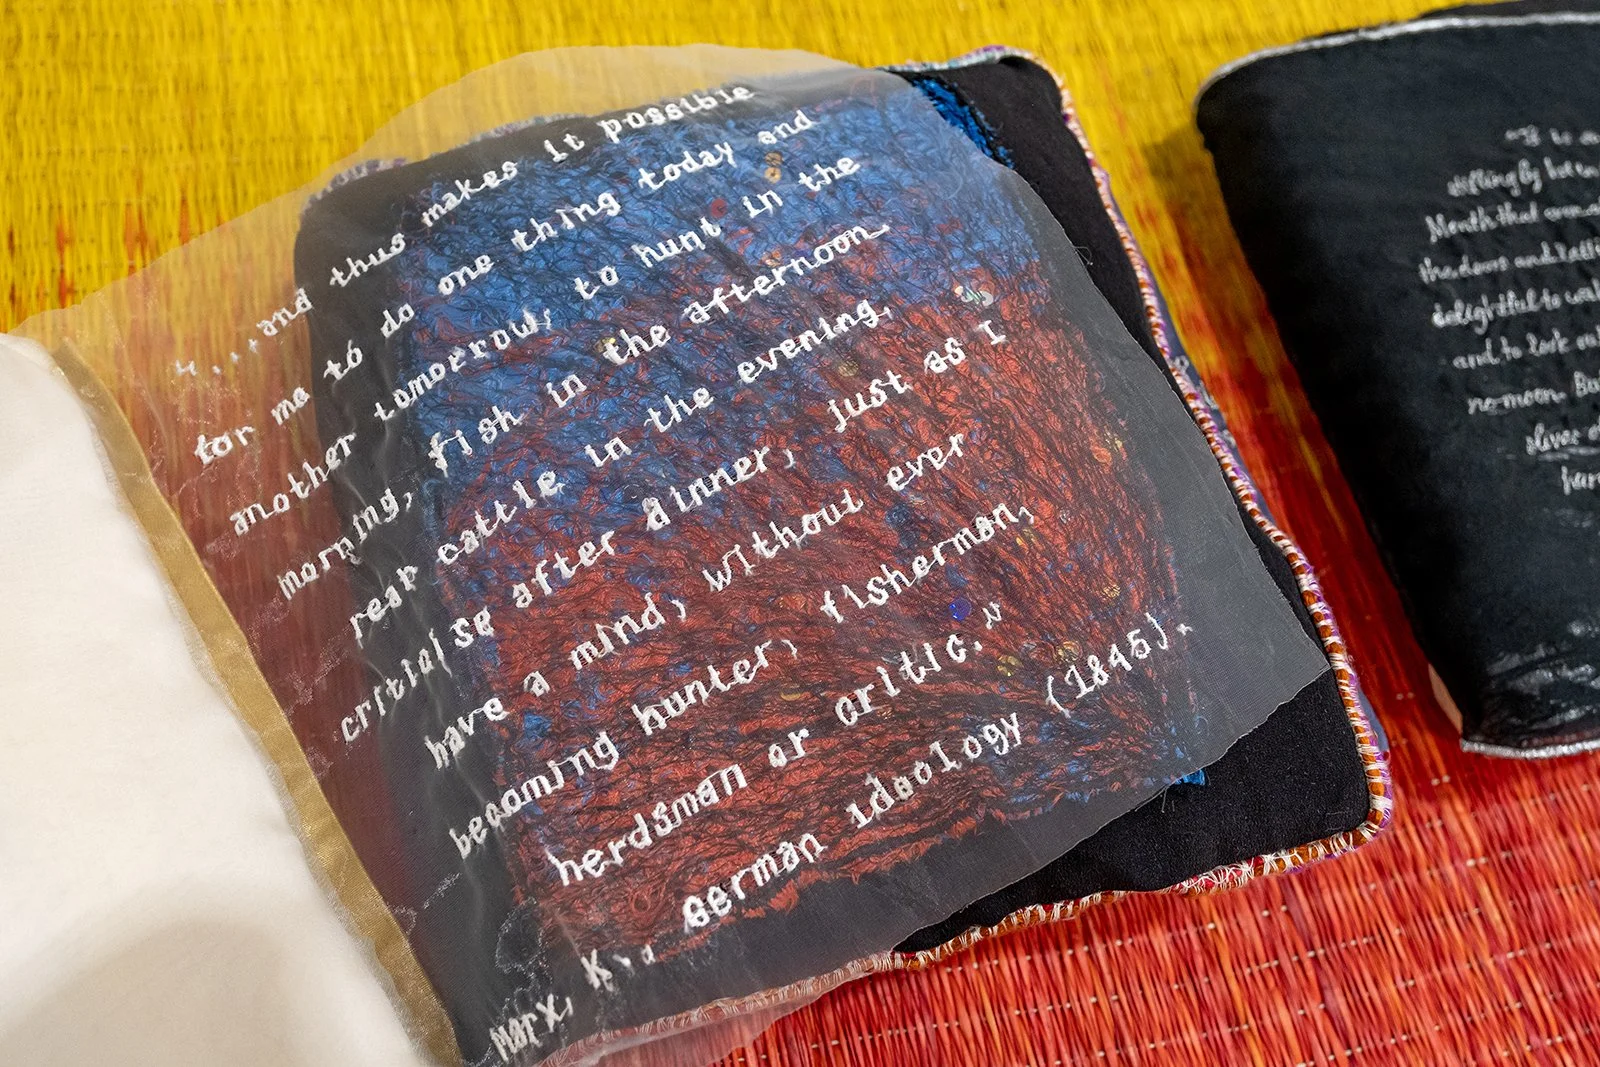 "...and thus makes it possible
for me to do one thing today and
another tomorrow, to hunt in the
morning, fish in the afternoon,
rear cattle in the evening,
criticise after dinner, just as I
have a mind, without ever
becoming hunter, fisherman,
herdsman or critic."
Marx, K., German ideology (1845).
Month that
the doors and
delightful to
and to look
no moon. But